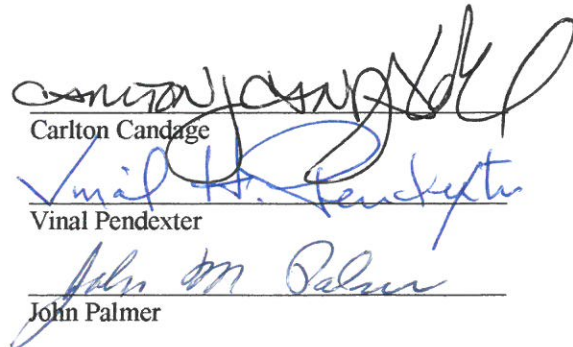 CARLTON J CANDAGE
Carlton Candage
Vinal H. Pendexter
Vinal Pendexter
John M Palmer
John Palmer